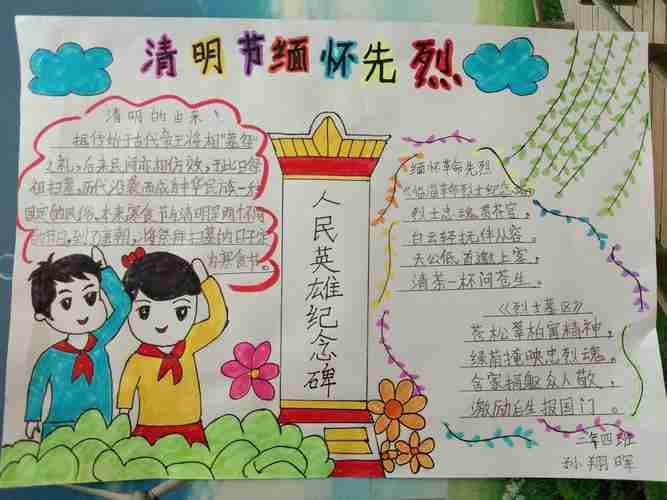 清明节缅怀先烈
清明的由来
相传始于古代帝王将相"墓祭"
之礼,后来民间亦相仿效,于此日祭
祖扫墓,历代沿袭而成为中华民族一种
固定的风俗。本来寒食节与清明是两个不同
的节日,到了唐朝,将祭拜扫墓的日子定
为寒食节。
人民英雄纪念碑
缅怀革命先烈
烈士忠魂贯苍穹,
白云轻抚伴从容。
天公低首邀上客,
清茶一杯问苍生。
《烈士墓区》
苍松翠柏富精神,
绿荫掩映忠烈魂。
舍家捐躯众人敬,
激励后生报国门。
二年四班
孙翔晖